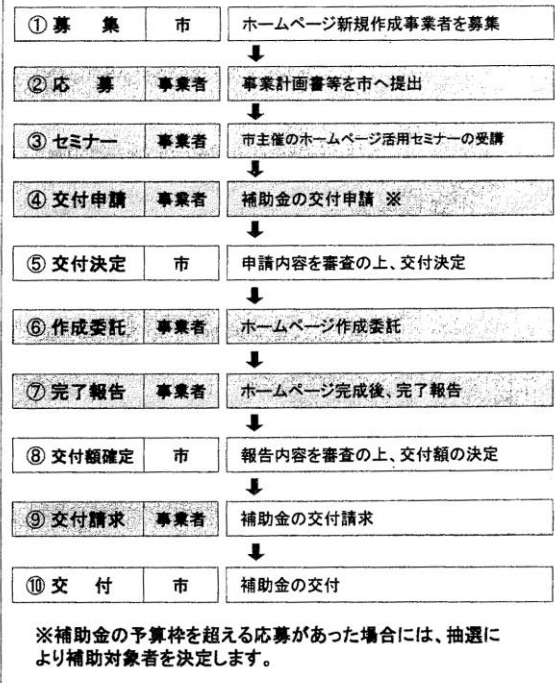 ① 募　集 市 ホームページ新規作成事業者を募集
⬇
② 応　募 事業者 事業計画書等を市へ提出
⬇
③ セミナー 事業者 市主催のホームページ活用セミナーの受講
⬇
④ 交付申請 事業者 補助金の交付申請 ※
⬇
⑤ 交付決定 市 申請内容を審査の上、交付決定
⬇
⑥ 作成委託 事業者 ホームページ作成委託
⬇
⑦ 完了報告 事業者 ホームページ完成後、完了報告
⬇
⑧ 交付額確定 市 報告内容を審査の上、交付額の決定
⬇
⑨ 交付請求 事業者 補助金の交付請求
⬇
⑩ 交　付 市 補助金の交付
※補助金の予算枠を超える応募があった場合には、抽選に
より補助対象者を決定します。